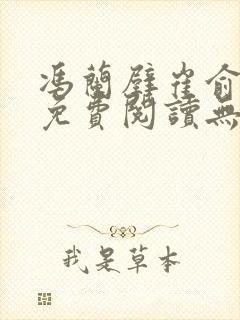 馮蘭璧崔俞
免費閱讀無
我是草本